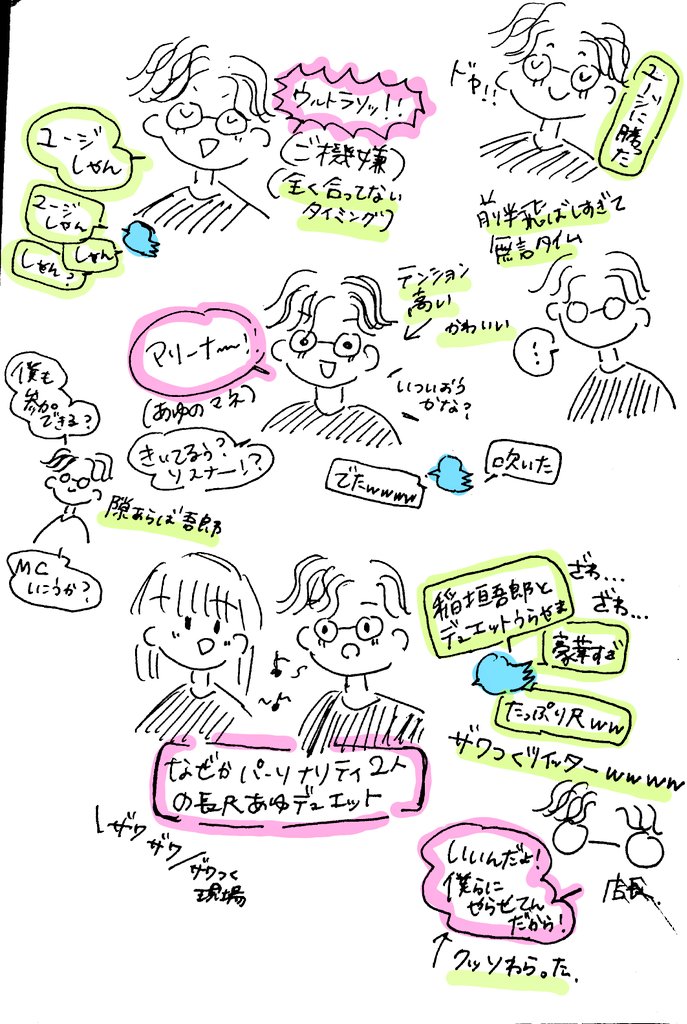 ウルトラソッ!!
(ご機嫌)
(全く合ってない
タイミング)
ユージ
しゃん
ユージ
しゃん
しゃん
しゃん?
ドヤ!!
ユージに勝った
前半飛ばしすぎて
無言タイム
…
テンション
高い
かわいい
アリーナー!!
(あゆのマネ)
きいてるぅ?
リスナー!?
いついおう
かな?
でたwwww
吹いた
僕も
参加
できる?
隙あらば吾郎
MC
いこうか?
稲垣吾郎と
デュエットうらやま
ざわ…
ざわ…
豪華すぎ
たっぷり尺ww
ザワつくツイッターwwww
なぜかパーソナリティ2人
の長尺あゆデュエット
ザワ
ザワ
ザワつく
現場
いいんだよ!
僕らに
やらせてん
だから!
店長
クッソわらった